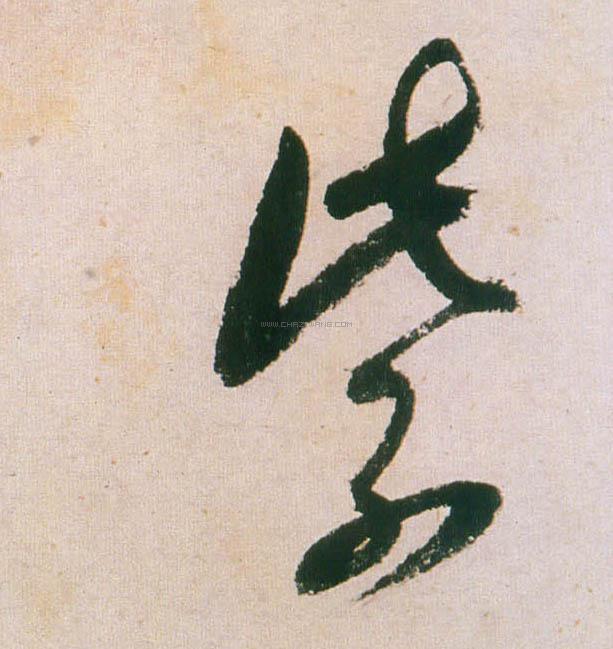 紫
WWW.CHAZIWANG.COM